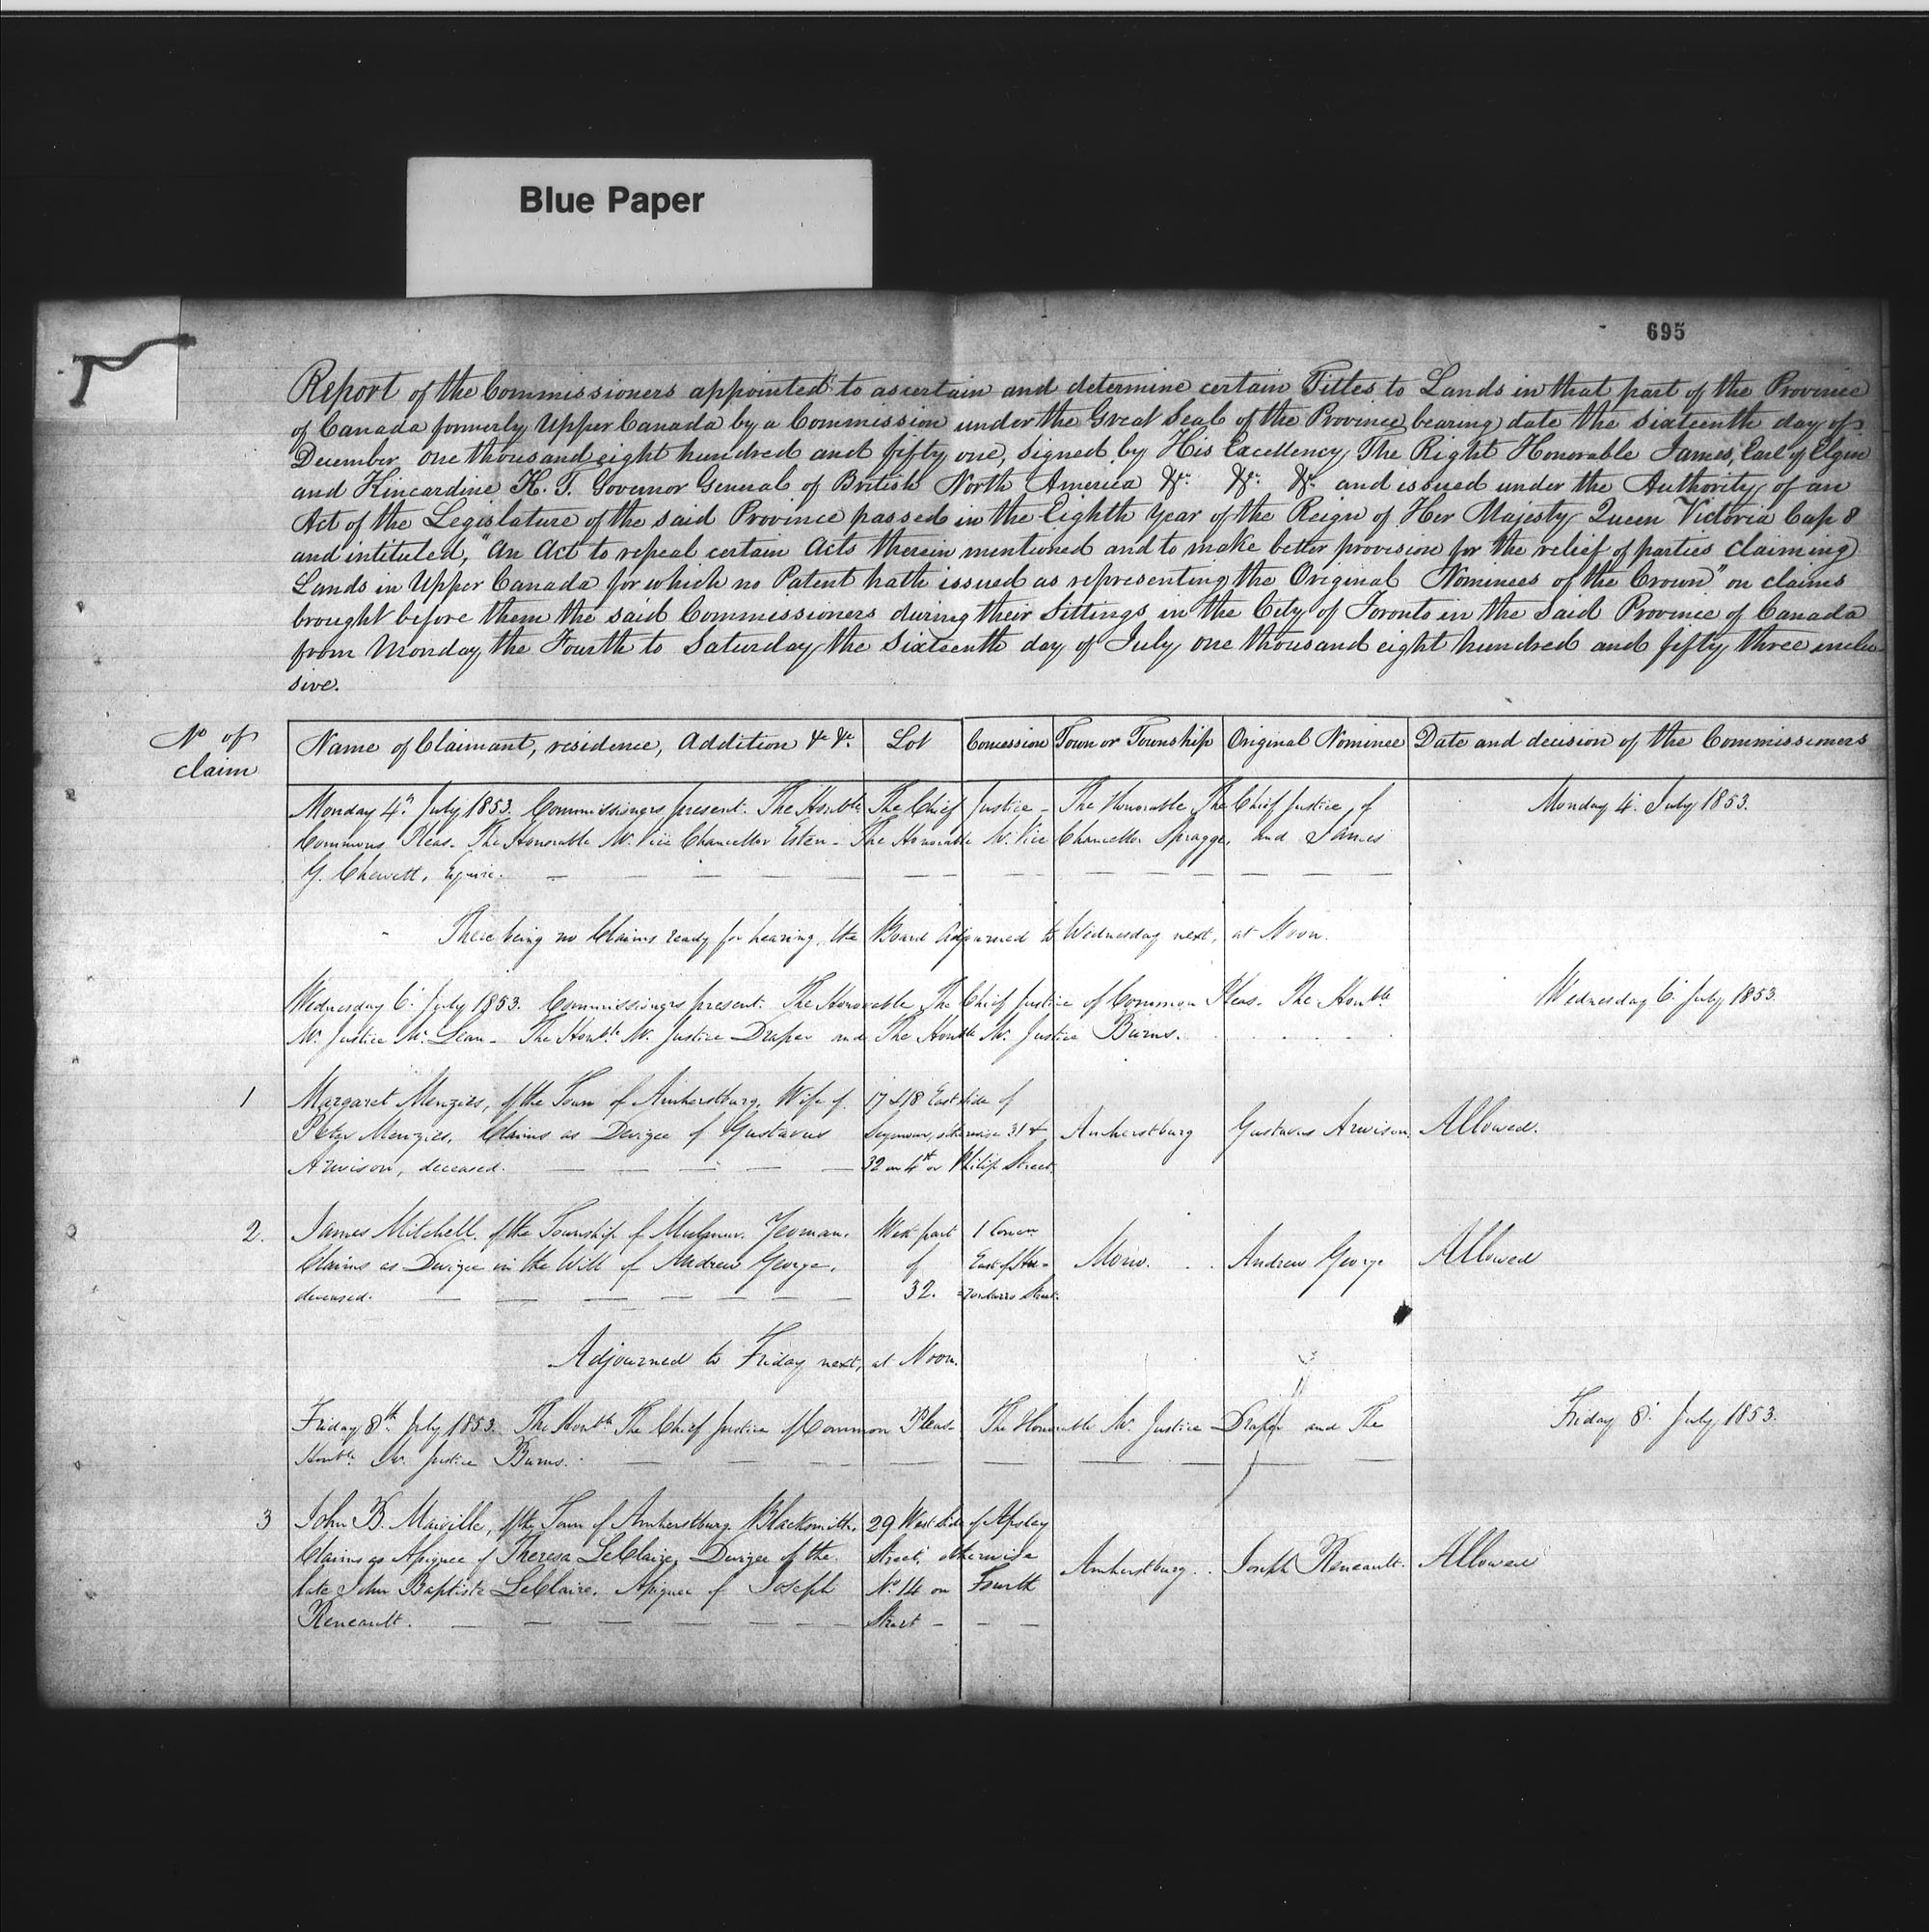 Blue Paper
695
Report of the Commissioners appointed to ascertain and determine certain Titles to Lands in that part of the Province
of Canada formerly Upper Canada by a Commission under the Great Seal of the Province bearing date the sixteenth day of
December one thousand eight hundred and fifty one, signed by His Excellency The Right Honorable James, Earl of Elgin
and Kincardine K. T. Governor General of British North America &c. &c. &c. and issued under the Authority of an
Act of the Legislature of the said Province passed in the Eighth Year of the Reign of Her Majesty Queen Victoria Cap 8
and intituled, "An Act to repeal certain Acts therein mentioned and to make better provision for the relief of parties claiming
Lands in Upper Canada for which no Patent hath issued as representing the Original Nominees of the Crown" on claims
brought before them the said Commissioners during their Sittings in the City of Toronto in the Said Province of Canada
from Monday the Fourth to Saturday the Sixteenth day of July one thousand eight hundred and fifty three inclu
sive.
No of claim | Name of Claimant, residence, Addition &c &c. | Lot | Concession | Town or Township | Original Nominee | Date and decision of the Commissioners
Monday 4th July 1853. Commissioners present. The Honble. The Chief Justice - The Honorable The Chief Justice, of Monday 4. July 1853.
Commons Pleas. The Honorable Mr. Vice Chancellor Esten - The Honorable Mr. Vice Chancellor Spragge, and James
G. Chewett, Esquire.
There being no Claims ready for hearing, the Board Adjourned to Wednesday next, at Noon.
Wednesday 6. July 1853. Commissioners present. The Honorable The Chief Justice of Common Pleas. The Honble Wednesday 6. July 1853.
Mr. Justice Mc. Lean - The Honble. Mr. Justice Draper and The Honble Mr. Justice Burns.
1 Margaret Menzies, of the Town of Amherstburg, Wife of 17 & 18 East side of
Peter Menzies, Claims as Devizee of Gustavus Seymour, otherwise 31 & Amherstburg Gustavus Arvison. Allowed.
Arvison, deceased. 32 on 4th or Philip Street.
2. James Mitchell, of the Township of Mulmur. Yeoman. West part 1 Concn.
Claims as Devizee in the Will of Andrew George, of East of Hu- Mono. Andrew George Allowed
deceased. 32. Street.
Adjourned to Friday next, at Noon.
Friday 8th. July 1853. The Honble The Chief Justice of Common Pleas - The Honorable Mr. Justice Draper and The Friday 8. July 1853.
Honble Mr. Justice Burns.
3 John B. Maiville, of the Town of Amherstburg Blacksmith. 29 West Side of Apsley
Claims as Assignee of Theresa LeClaire, Devizee of the Street, otherwise Amherstburg. Joseph Reneault. Allowed
late John Baptiste LeClaire, Assignee of Joseph No. 14 on Fourth
Reneault. Street